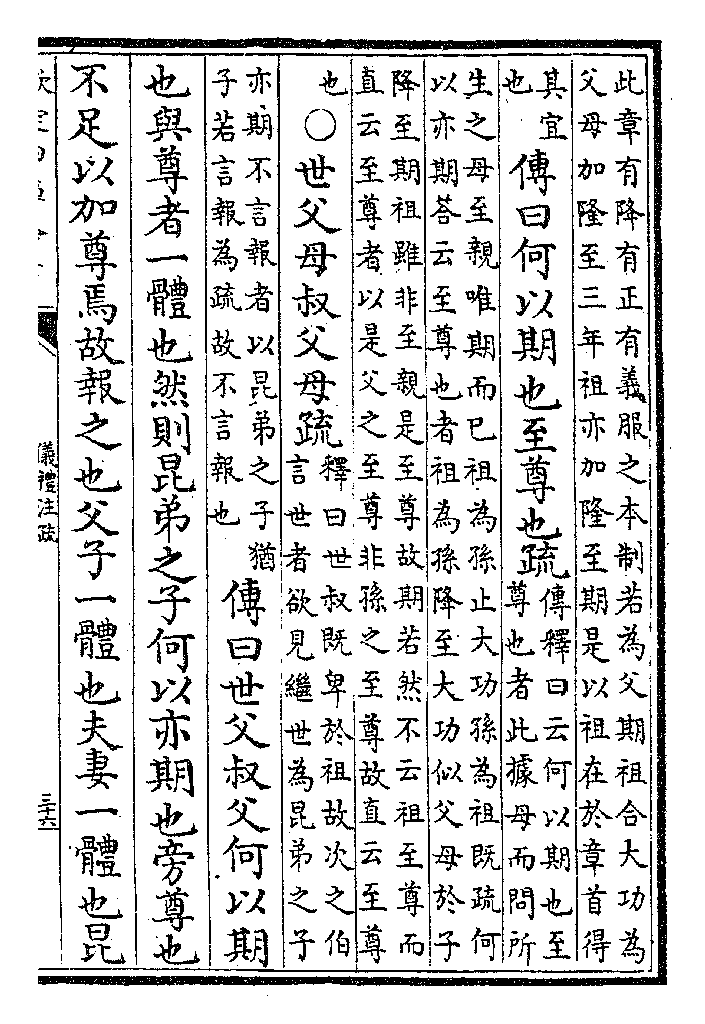 此章有降有正有義服之本制若為父期祖合大功為
父母加隆至三年祖亦加隆至期是以祖在於章首得
其宜
也
傳曰何以期也至尊也疏
傳釋曰云何以期也至
尊也者此據母而問所
生之母至親唯期而已祖為孫止大功孫為祖既疏何
以亦期荅云至尊也者祖為孫降至大功似父母於子
降至期祖雖非至親是至尊故期若然不云祖至尊而
直云至尊者以是父之至尊非孫之至尊故直云至尊
也
○世父母叔父母疏
釋曰世叔既卑於祖故次之伯
言世者欲見繼世為昆弟之子
亦期不言報者以昆弟之子猶
子若言報為疏故不言報也
傳曰世父叔父何以期
也與尊者一體也然則昆弟之子何以亦期也旁尊也
不足以加尊焉故報之也父子一體也夫妻一體也昆
儀禮注疏
三十六